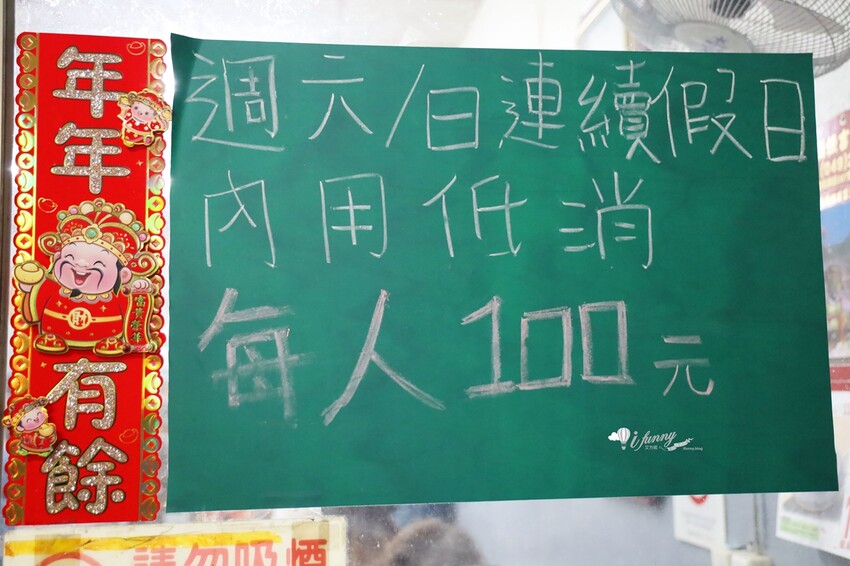 年年有餘
富貴榮華
週六/日連續假日
內用低消
每人100元
i funny
請勿吸煙